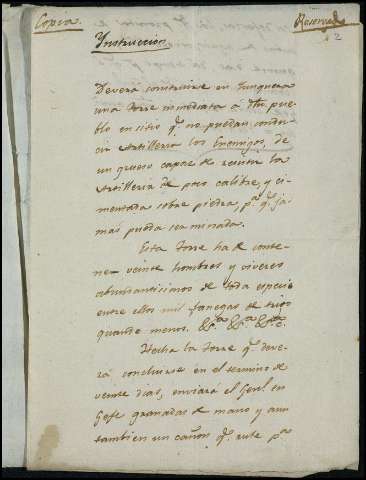 Copia
Reservad
2
Instruccion
Deverá construirse en Junquera
una torre inmediata á dho pue-
blo en sitio q.e no puedan condu-
cir Artilleria los Enemigos, de
un grueso capaz de resistir la
Artilleria de poco calibre, y ci-
mentada sobre piedra, p.a q.e ja-
mas pueda ser minada.
Esta torre ha de conte-
ner veinte hombres y viveres
abundantisimos de toda especie
entre ellos mil fanegas de trigo
quando menos. &.a &.a &.a
Hecha la torre q.e deve-
rá concluirse en el termino de
veinte dias, enviará el Gen.l en
Gefe granadas de mano y aun
tambien un cañon q.e este p.a